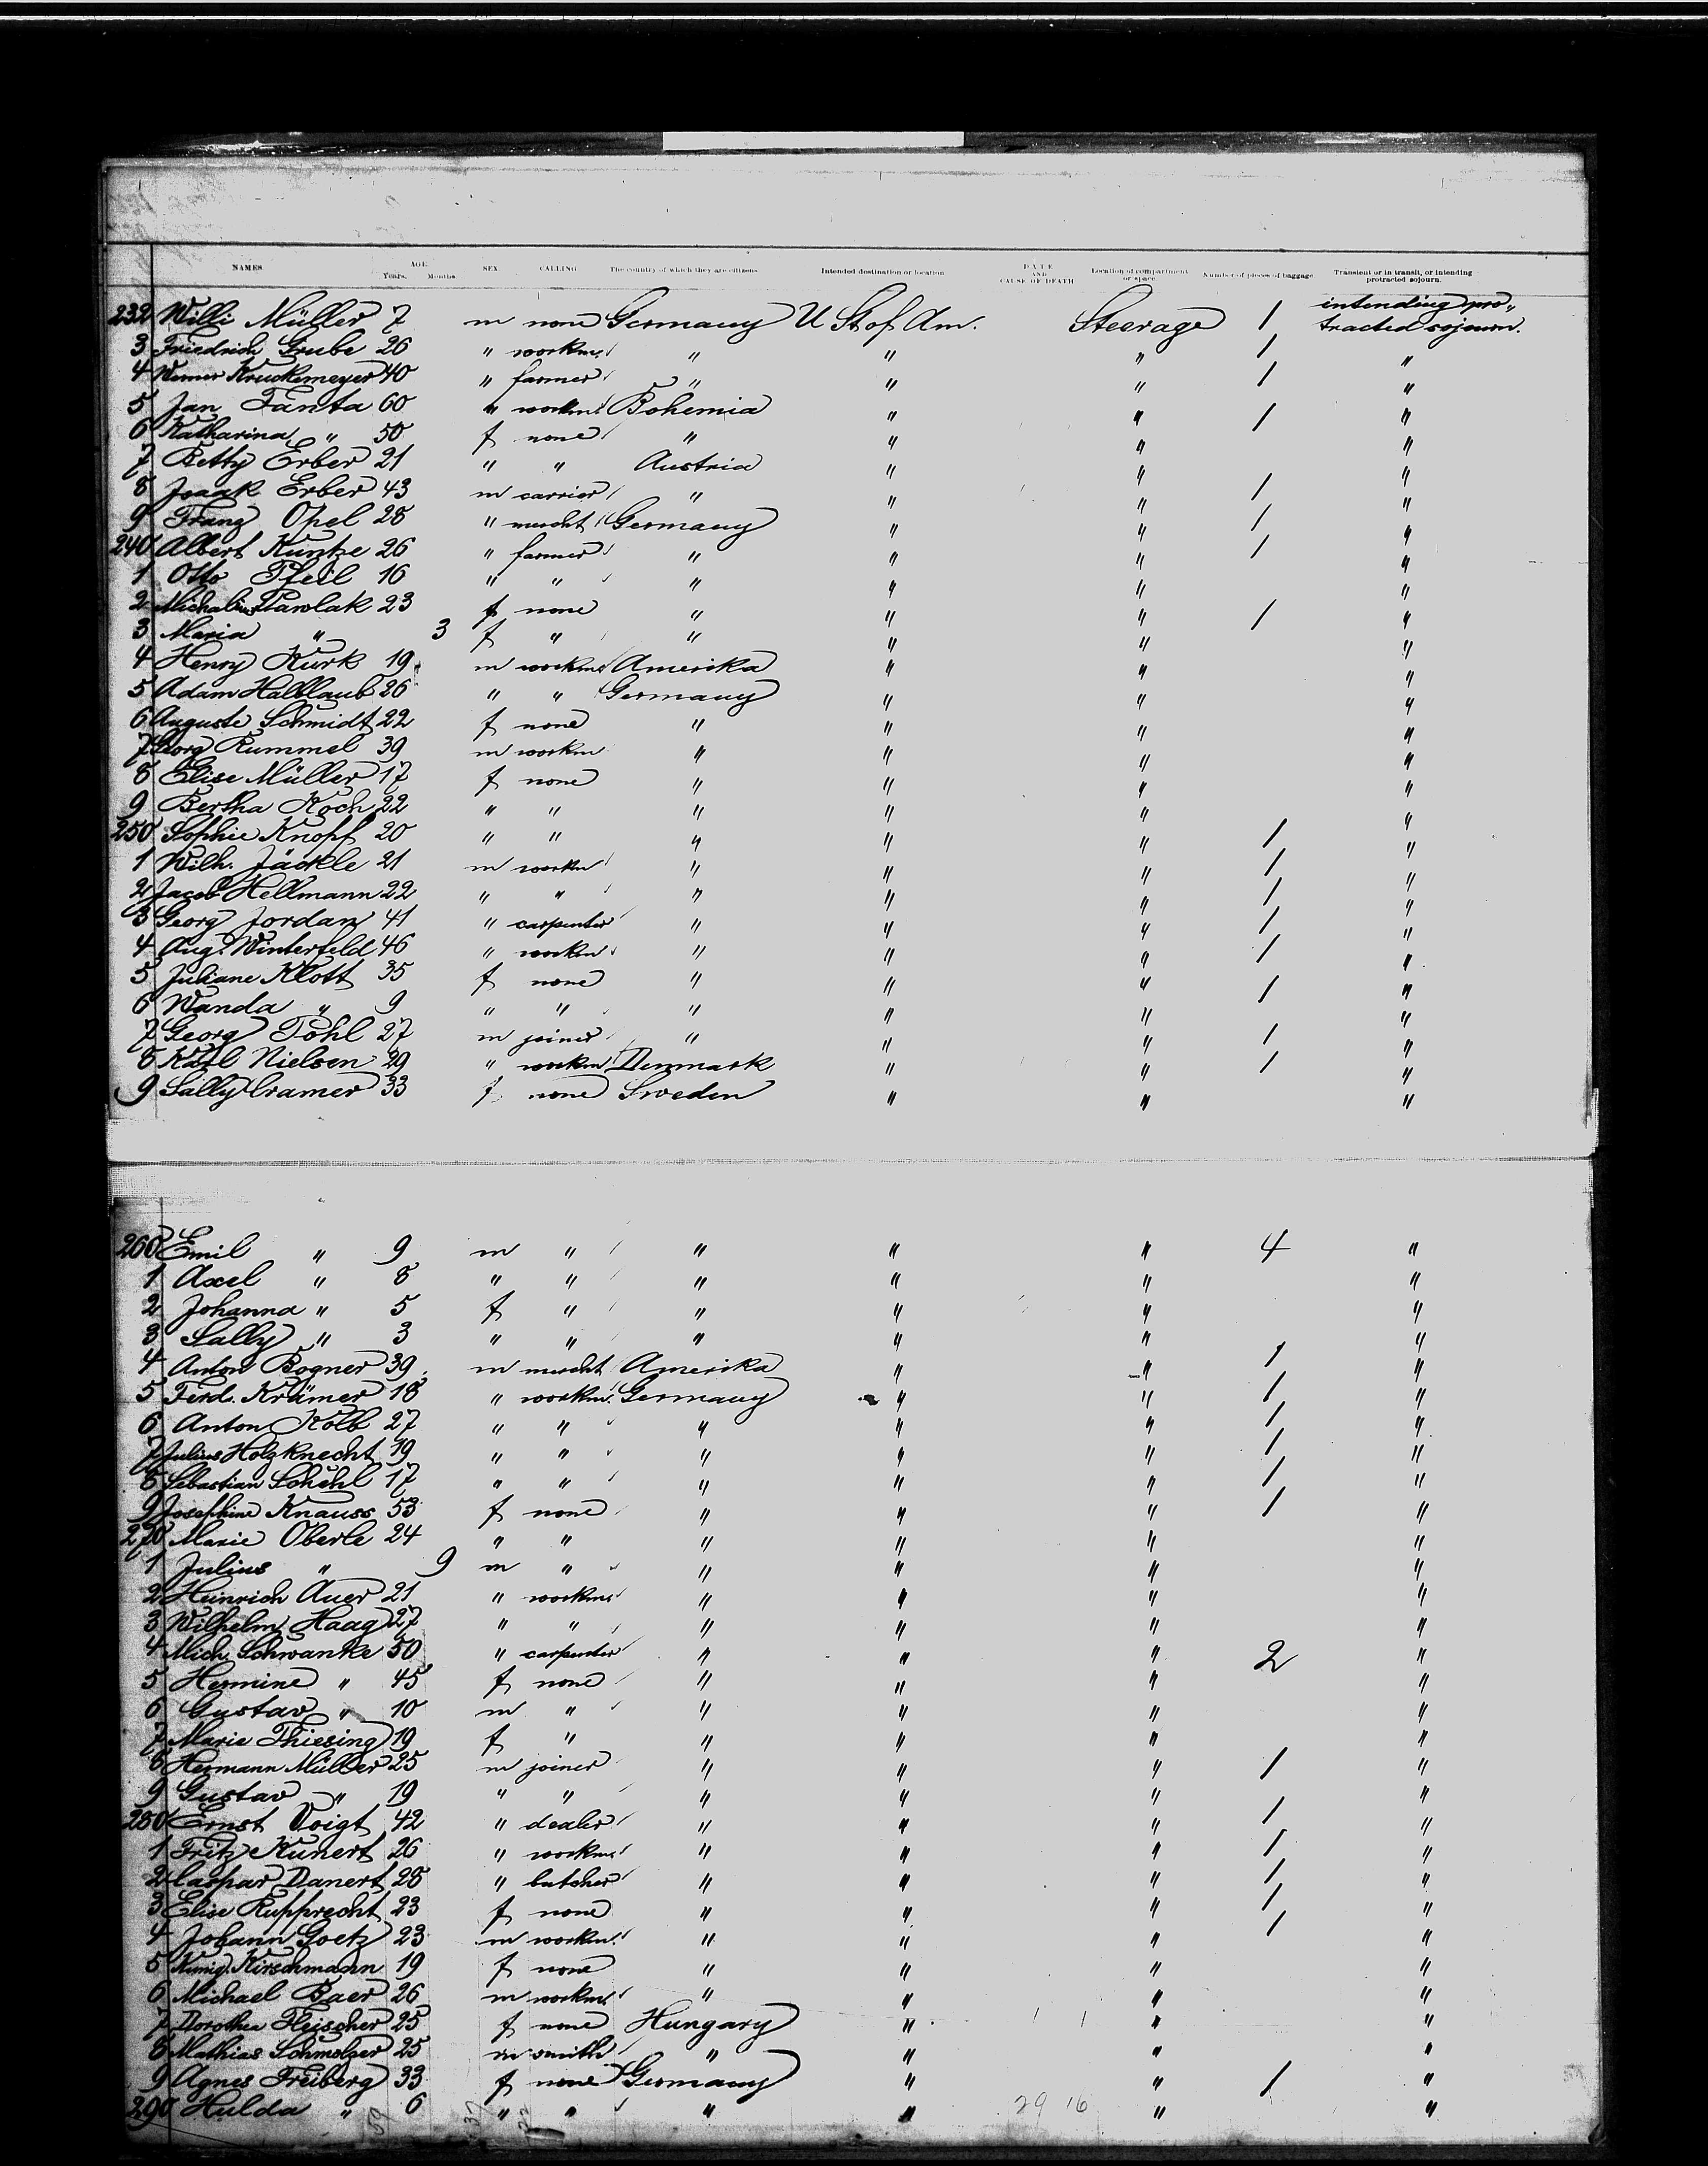 NAMES. AGE. Years. Months. SEX CALLING The country of which they are citizens Intended destination or location DATE AND CAUSE OF DEATH Location of compartment or space Number of pieces of baggage Transient or in transit, or intending protracted sojourn.
232 Willi Müller 7 m none Germany U St of Am. Steerage 1 intending pro„ tracted sojourn.
3 Friedrich Grube 26 " workm. " " " 1 "
4 Werner Kruckemeyer 40 " farmer " " " 1 "
5 Jan Fanta 60 " workm. Bohemia " " 1 "
6 Katharina " 50 f none " " " "
7 Betty Erber 21 " " Austria " " "
8 Isaak Erber 43 m carrier " " " 1 "
9 Franz Opel 28 " mercht Germany " " 1 "
240 Albert Kuntze 26 " farmer " " " 1 "
1 Otto Pfeil 16 " " " " " "
2 Michalina Pawlak 23 f none " " " 1 "
3 Maria " 3 f " " " " "
4 Henry Kurk 19 m workm. Amerika " " "
5 Adam Halblaub 26 " " Germany " " "
6 Auguste Schmidt 22 f none " " " "
7 Georg Rummel 39 m workm " " " "
8 Elise Müller 17 f none " " " "
9 Bertha Koch 22 " " " " " "
250 Sophie Knopf 20 " " " " " 1 "
1 Wilh. Jäckle 21 m workm " " " 1 "
2 Jacob Hellmann 22 " " " " " 1 "
3 Georg Jordan 41 " carpenter " " " 1 "
4 Aug. Winterfeld 46 " workm. " " " 1 "
5 Juliane Klott 35 f none " " " 1 "
6 Wanda " 9 " " " " " "
7 Georg Pohl 27 m joiner " " " 1 "
8 Karl Nielsen 29 " workm Denmark " " 1 "
9 Sally Cramer 33 f. none Sweden " " "
260 Emil " 9 m " " " " 4 "
1 Axel " 8 " " " " " "
2 Johanna " 5 f " " " " "
3 Sally " 3 " " " " " "
4 Anton Bogner 39 m mercht Amerika " " 1 "
5 Ferd. Krämer 18 " workm. Germany " " 1 "
6 Anton Kolb 27 " " " " " 1 "
7 Julius Holzknecht 19 " " " " " 1 "
8 Sebastian Schehl 17 " " " " " 1 "
9 Josephine Knauss 53 f none " " " 1 "
270 Marie Oberle 24 " " " " " "
1 Julius " 9 m " " " " "
2 Heinrich Auer 21 " workm. " " " "
3 Wilhelm Haag 27 " " " " " "
4 Mich. Schwanke 50 " carpenter " " " 2 "
5 Hermine " 45 f none " " " "
6 Gustav " 10 m " " " " "
7 Marie Thiesing 19 f " " " " "
8 Hermann Müller 25 m joiner " " " 1 "
9 Gustav " 19 " " " " " "
280 Ernst Voigt 42 " dealer " " " 1 "
1 Fritz Kunert 26 " workm. " " " 1 "
2 Caspar Danert 28 " butcher " " " 1 "
3 Elise Rupprecht 23 f none " " " 1 "
4 Johann Goetz 23 m workm. " " " 1 "
5 Kunig. Kirschmann 19 f none " " " "
6 Michael Baer 26 m workm. " " " "
7 Dorothea Fleischer 25 f none Hungary " " "
8 Mathias Schmelzer 25 m smith " " " "
9 Agnes Freiberg 33 f none Germany " " 1 "
290 Hulda " 6 " " " " 29 16 " "
59 37